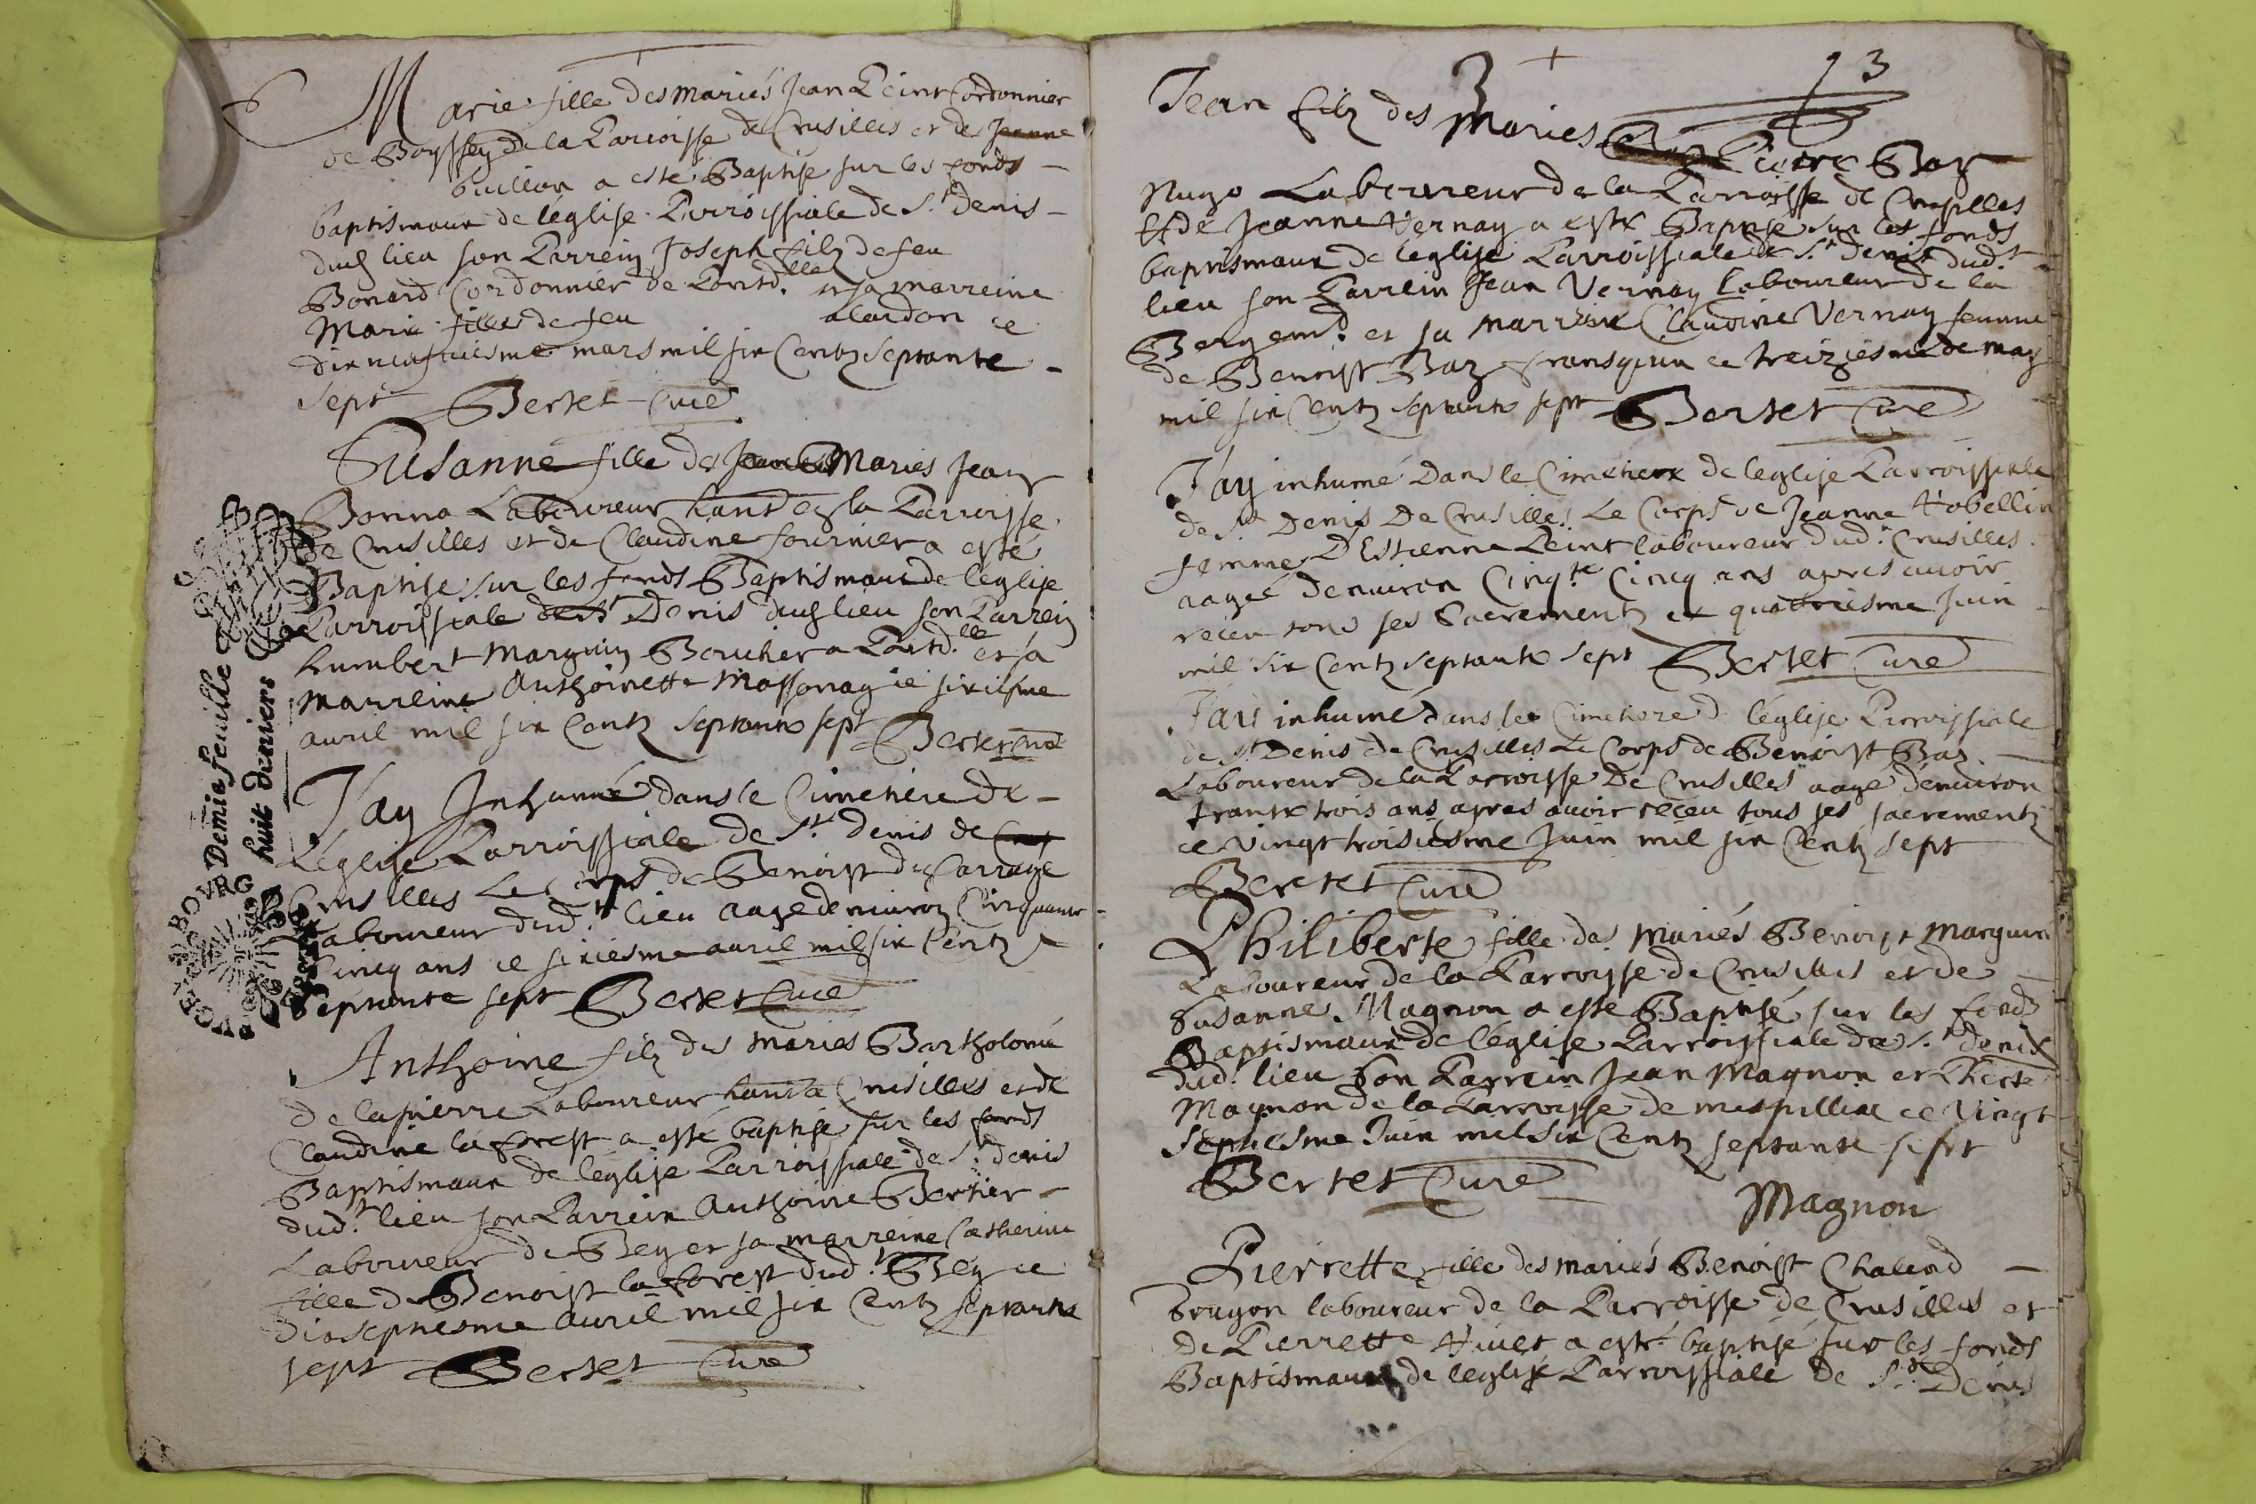 6
Marie fille des mariés Jean Peint Cordonnier
de Boyssey de la Parroisse de Crusilles et de Jeanne
buillon a esté Baptise sur les fonds
baptismaux de léglise Parroissiale de St. denis
dud lieu son Parrein Joseph filz de feu
Bonard Cordonnier de Pontd. et sa marreine
Marie fille de feu alardon ce
dix neufiesme mars mil six Centz septante
sept Bertet Curé
Susanne fille des Mariés Jean
Bonna Laboureur hantd en la Parroisse
de Crusilles et de Claudine fournier a esté
Baptise sur les fonds Baptismaux de léglise
Parroissiale de St Denis dud lieu son Parrein
humbert Marguin Boucher a Pontd.lle et sa
marreine Anthoinette Massonay ce sixiesme
avril mil six Centz septante sept Bertet Curé
J'ay Inhumé dans le Cimetiere de
Léglise Parroissiale de St. denis de
Crusilles Le Corps de Benoist du Carrage
Laboureur dud.t lieu aage denviron Cinquante
Cincq ans ce sixiesme avril mil six Centz
septante sept Bertet Curé
Anthoine filz des mariés Bartholomé
de lapierre Laboureur hanta Crusilles et de
Claudine la forest a esté baptise sur les fonds
Baptismaux de léglise Parroissiale de St. denis
dud.t lieu son Parrein Anthoine Bertier
Laboureur de Bey et sa marreine Catherine
fille de Benoist la forest dud.t Bey ce
dixseptiesme avril mil six Centz septante
sept Bertet Curé
BOURG
Demie feuille
huit deniers
3 13
Jean filz des Mariés Pierre Bay
Nugo Laboureur de la Parroisse de Crusilles
et de Jeanne Vernay a esté Baptise sur les fonds
baptismaux de léglise Parroissiale de St. denis dud.t
lieu son Parrein Jean Vernay Laboureur de la
Bergemd. et sa marreine Claudine Vernay femme
de Benoist Baz fransquin ce treiziesme de may
mil six Centz septante sept Bertet Curé
J'ay inhumé Dans le Cimetiere de leglise Parroissiale
de St. Denis De Crusilles Le Corps de Jeanne Hobellin
femme D'Estienne Peint laboureur dud.t Crusilles
aagée denviron Cinq.te Cincq ans apres avoir
receu tous ses Sacrementz ce quatriesme Juin
mil six Centz septante sept Bertet Curé
J'ay inhumé dans le Cimetiere de léglise Parroissiale
de St. Denis de Crusilles Le Corps de Benoist Baz
Laboureur de la Parroisse De Crusilles aagé denviron
trante trois ans apres avoir receu tous ses sacrementz
ce vingt troisiesme Juin mil six Centz sept
Bertet Curé
Philiberte fille des Mariés Benoist Marguin
Laboureur de la Parroisse de Crusilles et de
Susanne Magnon a esté Baptisé sur les fonds
Baptismaux de l'église Parroissiale de St. denis
dud.t lieu Son Parrein Jean Magnon et Pherte
Magnon de la Parroisse de mespilliat ce vingt
septiesme Juin mil six Centz septante sept
Bertet Curé
Magnon
Pierrette fille des mariés Benoist Chaland
brugon laboureur de la Parroisse de Crusilles et
de Pierrette Hivet a esté baptisé sur les fonds
Baptismaux de leglise Parroissiale de St. Denis